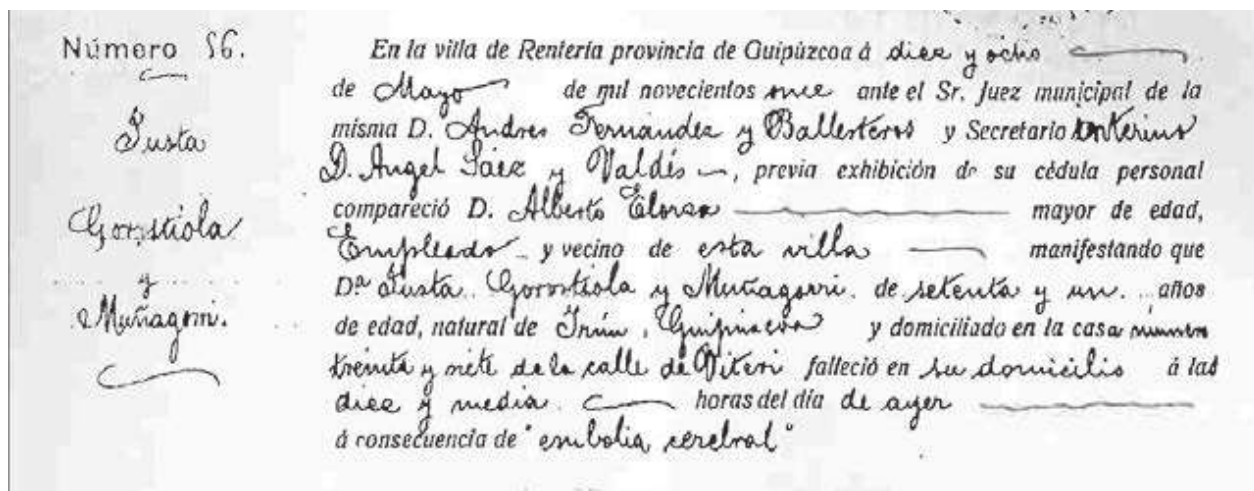 Número 56.
Justa
Gorostiola
y
Muñagorri.
En la villa de Rentería provincia de Guipúzcoa á diez y ocho
de Mayo de mil novecientos once ante el Sr. Juez municipal de la
misma D. Andres Fernandez y Ballesteros y Secretario interino
D. Angel Sáez y Valdés, previa exhibición de su cédula personal
compareció D. Alberto Elorza mayor de edad,
Empleado y vecino de esta villa manifestando que
Dª Justa Gorostiola y Muñagorri. de setenta y un años
de edad, natural de Irún, Guipúzcoa y domiciliado en la casa número
treinta y siete de la calle de Viteri falleció en su domicilio á las
diez y media. horas del día de ayer
á consecuencia de "embolia cerebral"